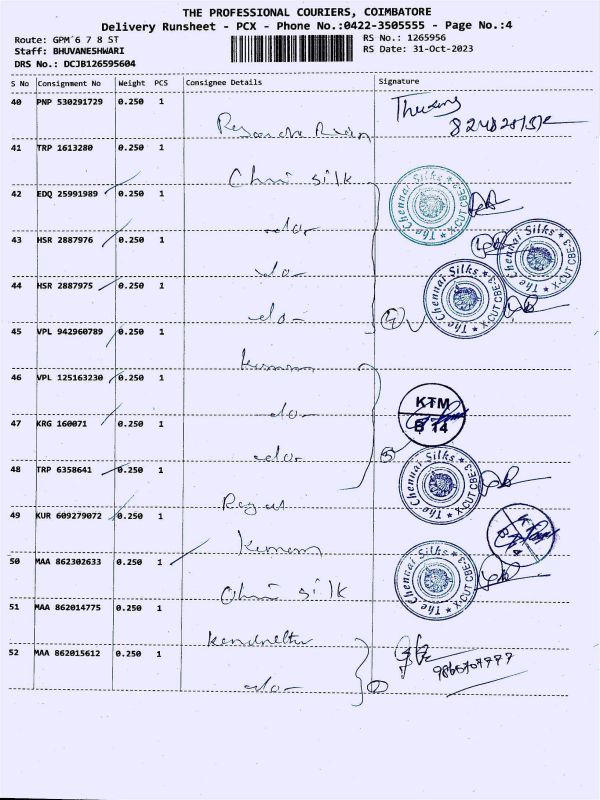 THE PROFESSIONAL COURIERS, COIMBATORE
Delivery Runsheet - PCX - Phone No.:0422-3505555 - Page No.:4
Route: GPM`6 7 8 ST
RS No.: 1265956
Staff: BHUVANESHWARI
RS Date: 31-Oct-2023
DRS No.: DCJB126595604
S No Consignment No Weight PCS Consignee Details Signature
40 PNP 530291729 0.250 1
41 TRP 1613280 0.250 1
silk
42 EDQ 25991989 0.250 1
The Chennai Silks ★ X-CUT CBE-3 ★
-do-
43 HSR 2887976 0.250 1
The Chennai Silks ★ X-CUT CBE-3 ★
-do-
44 HSR 2887975 0.250 1
The Chennai Silks ★ X-CUT CBE-3 ★
-do-
4
45 VPL 942960789 0.250 1
46 VPL 125163230 0.250 1
KTM
B 14
-do-
47 KRG 160071 0.250 1
-do-
5
48 TRP 6358641 0.250 1
The Chennai Silks ★ X-CUT CBE-3 ★
49 KUR 609279072 0.250 1
KTM
B 14
50 MAA 862302633 0.250 1
The Chennai Silks ★ X-CUT CBE-3 ★
silk
51 MAA 862014775 0.250 1
52 MAA 862015612 0.250 1
-do-
2